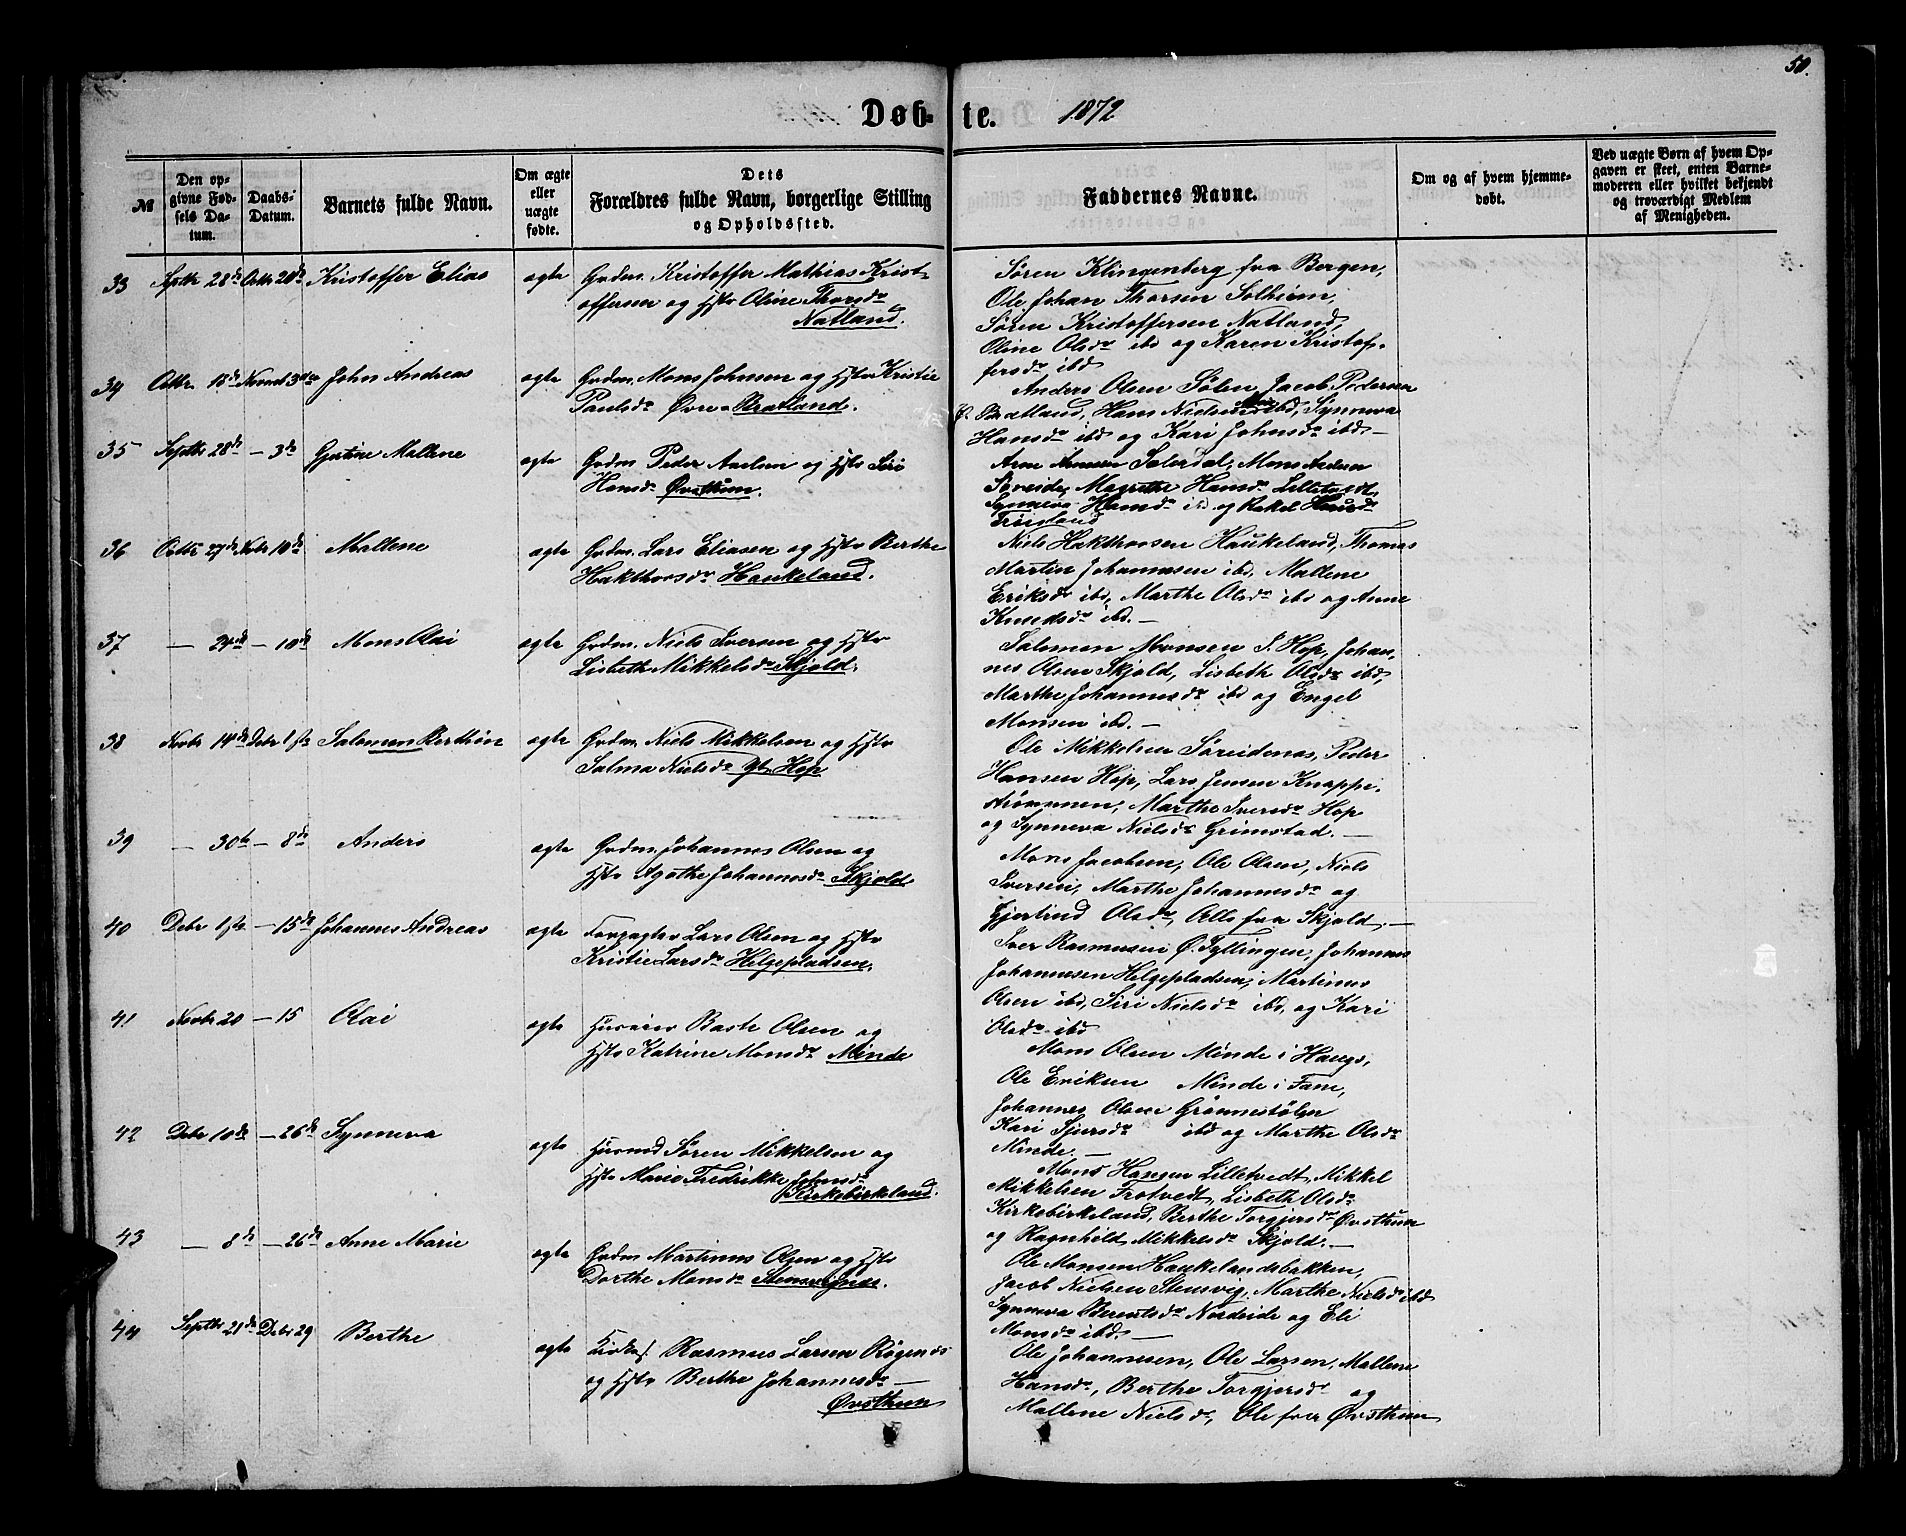 50.
Døbte. 1872
№
Den opgivne Fødsels Datum.
Daabs-Datum.
Barnets fulde Navn.
Om ægte eller uægte fødte.
Dets Forældres fulde Navn, borgerlige Stilling og Opholdssted.
Faddernes Navne.
Om og af hvem hjemmedøbt.
Ved uægte Børn af hvem Opgaven er skeet, enten Barnemoderen eller hvilket bekjendt og troværdigt Medlem af Menigheden.
33 Septbr 28de Octbr 20de Kristoffer Elias ægte Grdm. Kristoffer Mathias Krist-
offersen og Hstr Oline Thorsdr
Natland.
Søren Klingenberg fra Bergen,
Ole Johan Thorsen Solheim,
Søren Kristoffersen Natland,
Oline Olsdr ibd og Karen Kristof-
fersdr ibd
34 Octbr. 15de Novbr 3die John Andreas ægte Grdm. Mons Johnsen og Hstr Kristie
Paulsdr Øvre Bratland.
Anders Olsen Sølen, Jacob Pedersen
Ø. Bratland, Hans Nielsen ibd, Synneva
Hansdr ibd og Kari Johnsdr ibd –
35 Septbr 28de – 3de Gjertine Mallene ægte Grdm Peder Axelsen og Hstr Siri
Hansdr Øvsthun.
Arne Arnesen Sælerdal, Mons Andersen
Søreide, Magrethe Hansdr Lilletvedt,
Synneva Hansdr ibd og Rakel Hansdr
36 Octbr 27de Novbr 10de Mallene ægte Grdm. Lars Eliasen og Hstr Berthe
Hakthorsdr Haukeland.
Niels Hakthorsen Haukeland, Thomas
Martin Johannesen ibd, Mallene
Eriksdr ibd, Marthe Olsdr ibd og Anne
Knudsdr ibd. –
37 – 24de – 10de Mons Olai ægte Grdm. Niels Iversen og Hstr
Lisbeth Mikkelsdr Skjold.
Salomon Monsen S. Hop, Johan-
nes Olsen Skjold, Lisbeth Olsdr ibd,
Marthe Johannesdr ibd og Engel
Monsen ibd. –
38 Novbr 14de Debr 1ste Salomon Berthin ægte Grdm. Niels Mikkelsen og Hstr
Salma Nielsdr Yt. Hop
Ole Mikkelsen Søreidenæs, Peder
Hansen Hop, Lars Jensen Knappe-
strømmen, Marthe Iversdr Hop
og Synneva Nielsdr Grimstad. –
39 – 30te – 8de Anders ægte Grdm. Johannes Olsen og
Hstr Agathe Johannesdr Skjold
Mons Jacobsen, Ole Olsen, Niels
Iversen, Marthe Johannesdr og
Gjertrud Olsdr, Alle fra Skjold. –
40 Debr 1ste – 15de Johannes Andreas ægte Forpagter Lars Olsen og Hstr
Kristie Larsdr Helgepladsen.
Iver Rasmussen Ø. Tyllingen, Johannes
Johannesen Helgepladsen, Martinus
Olsen ibd, Siri Nielsdr ibd, og Kari
Olsdr ibd
41 Novbr 20 – 15 Olai ægte Huseier Baste Olsen og
Hstr Katrine Monsdr Minde
Mons Olsen Minde i Haugs,
Ole Eriksen Minde i Fane,
Johannes Olsen Grønnestølen
Kari Sjursdr ibd og Marthe Olsdr
Minde. –
42 Debr 10de – 26de Synneva ægte Husmd Søren Mikkelsen og
Hstr Marie Fredrikke Johnsdr
Kirkebirkeland.
Mons Hansen Lilletvedt, Mikkel
Mikkelsen Frotvedt, Lisbeth Olsdr
Kirkebirkeland, Berthe Torgjersdr Øvsthun
og Ragnhild Mikkelsdr Skjold. –
43 – 8de – 26de Anne Marie ægte Grdm Martinus Olsen og Hstr
Dorthe Monsdr
Ole Monsen Haukelandsbakken,
Jacob Nielsen Stensvig, Marthe Nielsdr ibd
Synneva Berentsdr Nordeide og Eli
Monsdr ibd. –
44 Septbr 21de Debr 29 Berthe ægte Rasmus Larsen Røgenæs
og Hstr Berthe Johannesdr –
Øvsthun
Ole Johannesen, Ole Larsen, Mallene
Hansdr, Berthe Torgjersdr og
Mallene Nielsdr, Ole fra Øvsthun